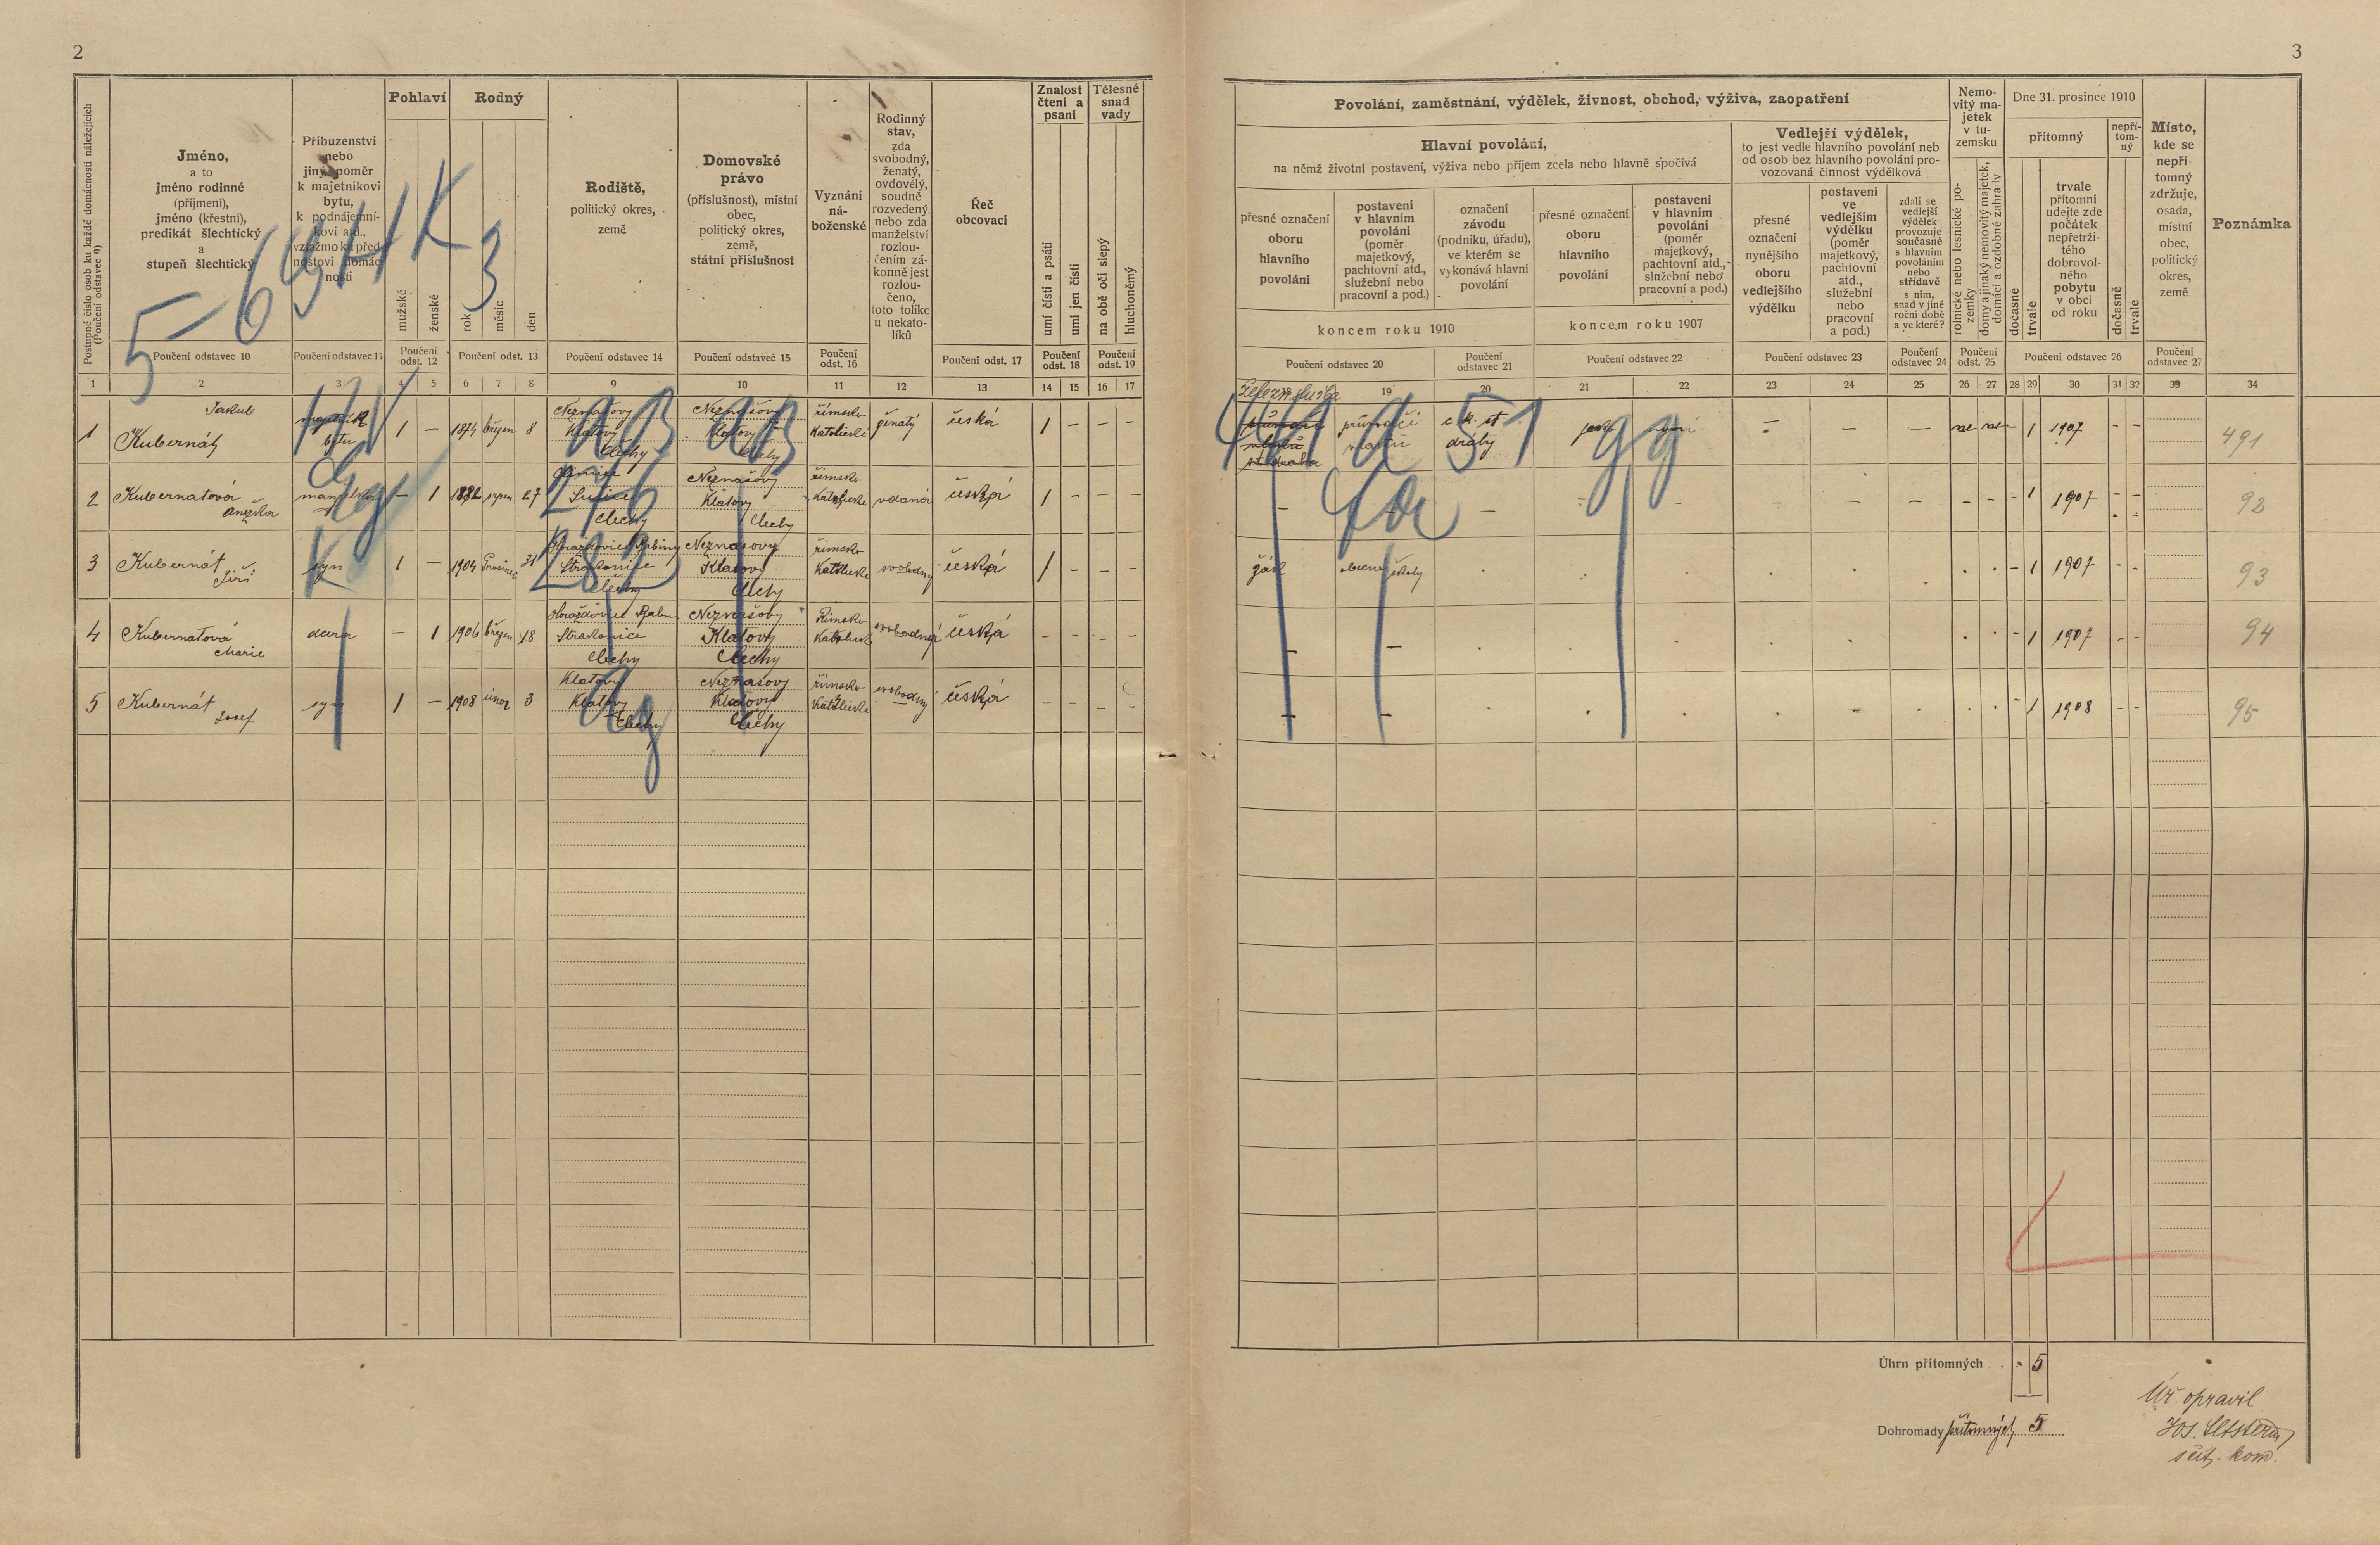 2
Postupné číslo osob ku každé domácnosti náležejících
(Poučení odstavec 9)
Jméno,
a to
jméno rodinné
(příjmení),
jméno (křestní),
predikát šlechtický
a
stupeň šlechtický
Příbuzenství
nebo
jiný poměr
k majetníkovi
bytu,
k podnájemní-
kovi atd.,
vztažmo ku před-
nostovi domác-
nosti
Pohlaví
mužské
ženské
Rodný
rok
měsíc
den
Rodiště,
politický okres,
země
Domovské
právo
(příslušnost), místní
obec,
politický okres,
země,
státní příslušnost
Vyznání
ná-
boženské
Rodinný
stav,
zda
svobodný,
ženatý,
ovdovělý,
soudně
rozvedený
nebo zda
manželství
rozlou-
čením zá-
konně jest
rozlou-
čeno,
toto toliko
u nekato-
líků
Řeč
obcovací
Znalost
čtení a
psaní
umí čísti a psáti
umí jen čísti
Tělesné
snad
vady
na obě oči slepý
hluchoněmý
Poučení odstavec 10
Poučení odstavec 11
Poučení
odst. 12
Poučení odst. 13
Poučení odstavec 14
Poučení odstavec 15
Poučení
odst. 16
Poučení odst. 17
Poučení
odst. 18
Poučení
odst. 19
1 2 3 4 5 6 7 8 9 10 11 12 13 14 15 16 17
5-69HK3
1 Kubernát Jakub majetník bytu 1 — 1874 březen 8 Neznašovy Klatovy Čechy Neznašovy Klatovy Čechy římsko katolické ženatý česká 1 - - -
2 Kubernatová Anežka manželka — 1 1882 srpen 27 Sušice Čechy Neznašovy Klatovy Čechy římsko katolické vdaná česká 1 - - -
3 Kubernát Jiří syn 1 — 1904 Prosinec 31 Horažďovice Babiny Strakonice Čechy Neznašovy Klatovy Čechy římsko katolické svobodný česká 1 - - -
4 Kubernatová Marie dcera — 1 1906 březen 18 Horažďovice Strakonice Čechy Neznašovy Klatovy Čechy Římsko katolické svobodná česká - - - -
5 Kubernát Josef syn 1 — 1908 únor 3 Klatovy Klatovy Čechy Neznašovy Klatovy Čechy římsko katolické svobodný česká - - - -
276
282
3
Povolání, zaměstnání, výdělek, živnost, obchod, výživa, zaopatření
Hlavní povolání,
na němž životní postavení, výživa nebo příjem zcela nebo hlavně spočívá
přesné označení
oboru
hlavního
povolání
postavení
v hlavním
povolání
(poměr
majetkový,
pachtovní atd.,
služební nebo
pracovní a pod.)
označení
závodu
(podniku, úřadu),
ve kterém se
vykonává hlavní
povolání
koncem roku 1910
přesné označení
oboru
hlavního
povolání
postavení
v hlavním
povolání
(poměr
majetkový,
pachtovní atd.,
služební nebo
pracovní a pod.)
koncem roku 1907
Vedlejší výdělek,
to jest vedle hlavního povolání neb
od osob bez hlavního povolání pro-
vozovaná činnost výdělková
přesné
označení
nynějšího
oboru
vedlejšího
výdělku
postavení
ve
vedlejším
výdělku
(poměr
majetkový,
pachtovní
atd.,
služební
nebo
pracovní
a pod.)
zdali se
vedlejší
výdělek
provozuje
současně
s hlavním
povoláním
nebo
střídavě
s ním,
snad v jiné
roční době
a ve které?
Nemo-
vitý ma-
jetek
v tu-
zemsku
rolnické nebo lesnické po-
zemky
domy a jinaký nemovitý majetek,
domácí a ozdobné zahrady
Dne 31. prosince 1910
přítomný
nepří-
tom-
ný
dočasně
trvale
trvale
přítomní
udejte zde
počátek
nepřetrži-
tého
dobrovol-
ného
pobytu
v obci
od roku
dočasně
trvale
Místo,
kde se
nepří-
tomný
zdržuje,
osada,
místní
obec,
politický
okres,
země
Poznámka
Poučení odstavec 20
Poučení
odstavec 21
Poučení odstavec 22
Poučení odstavec 23
Poučení
odstavec 24
Poučení
odst. 25
Poučení odstavec 26
Poučení
odstavec 27
19 20 21 22 23 24 25 26 27 28 29 30 31 32 33 34
železn. služba průvodčí vlaků c.k. st. dráhy jako nyní - - - ne ne - 1 1907 - - 491
- - - - - - - - - - 1 1907 - - 92
žák obecné školy - 1 1907 - - 93
- - - 1 1907 - - 94
- - - 1 1908 - - 95
Úhrn přítomných . - 5
Dohromady přítomných 5
Úř. opravil
sčít. kom.